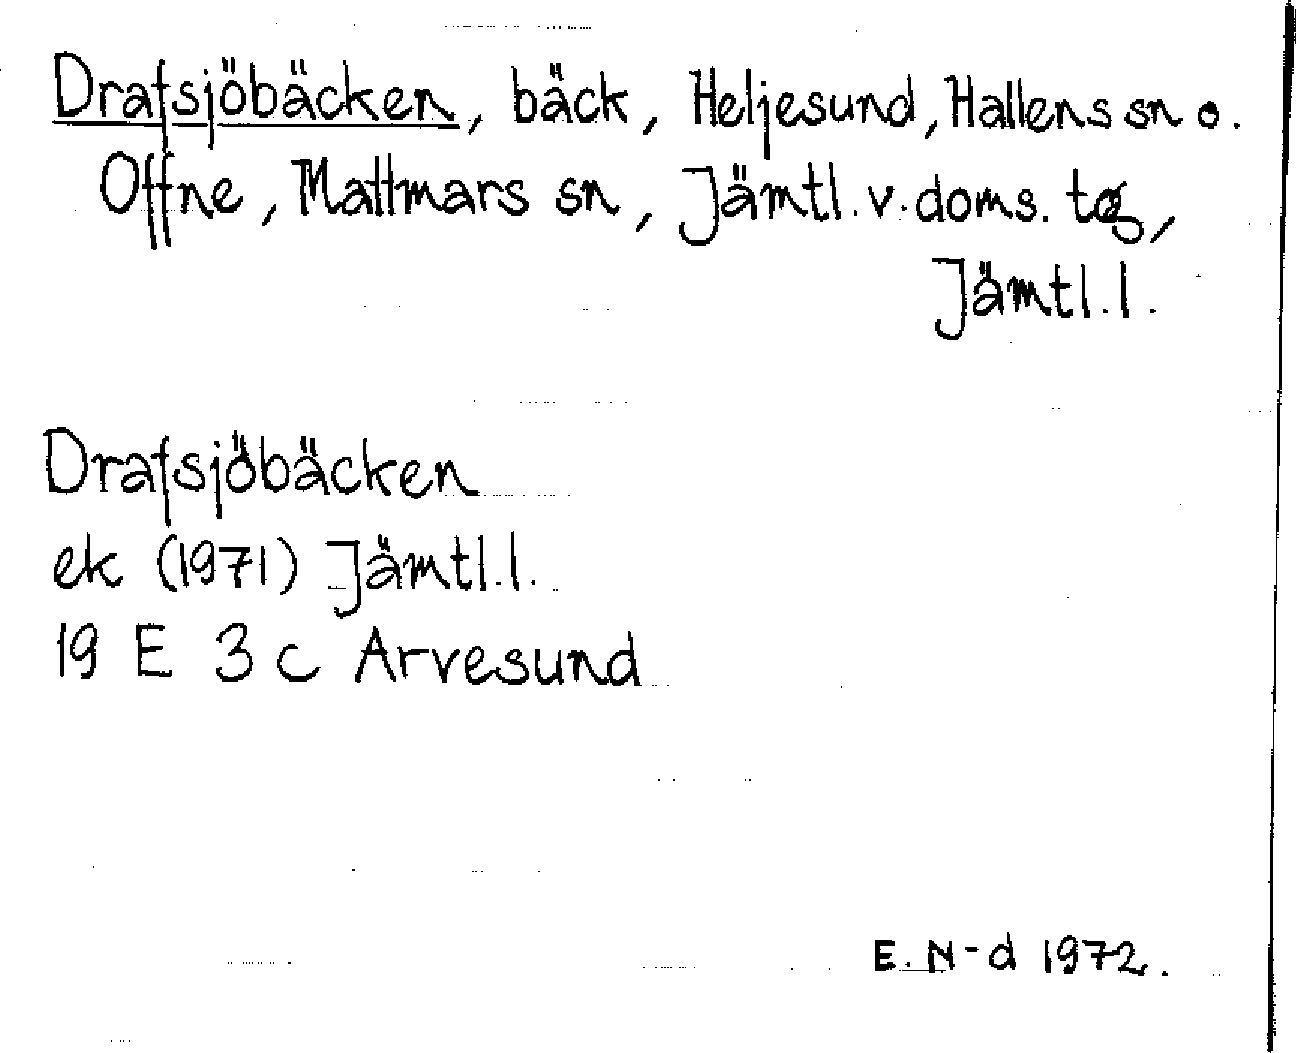 Drafsjöbäcken, bäck, Heljesund, Hallens sn o.
Offne, Mattmars sn, Jämtl. v. doms. tg,
Jämtl. l.
Drafsjöbäcken
ek (1971) Jämtl. l.
19 E 3 c Arvesund
E. N-d 1972.